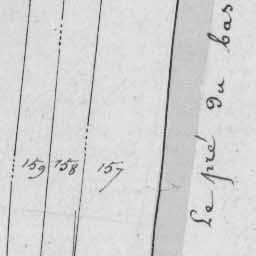 159 158 157
Le pré du bas